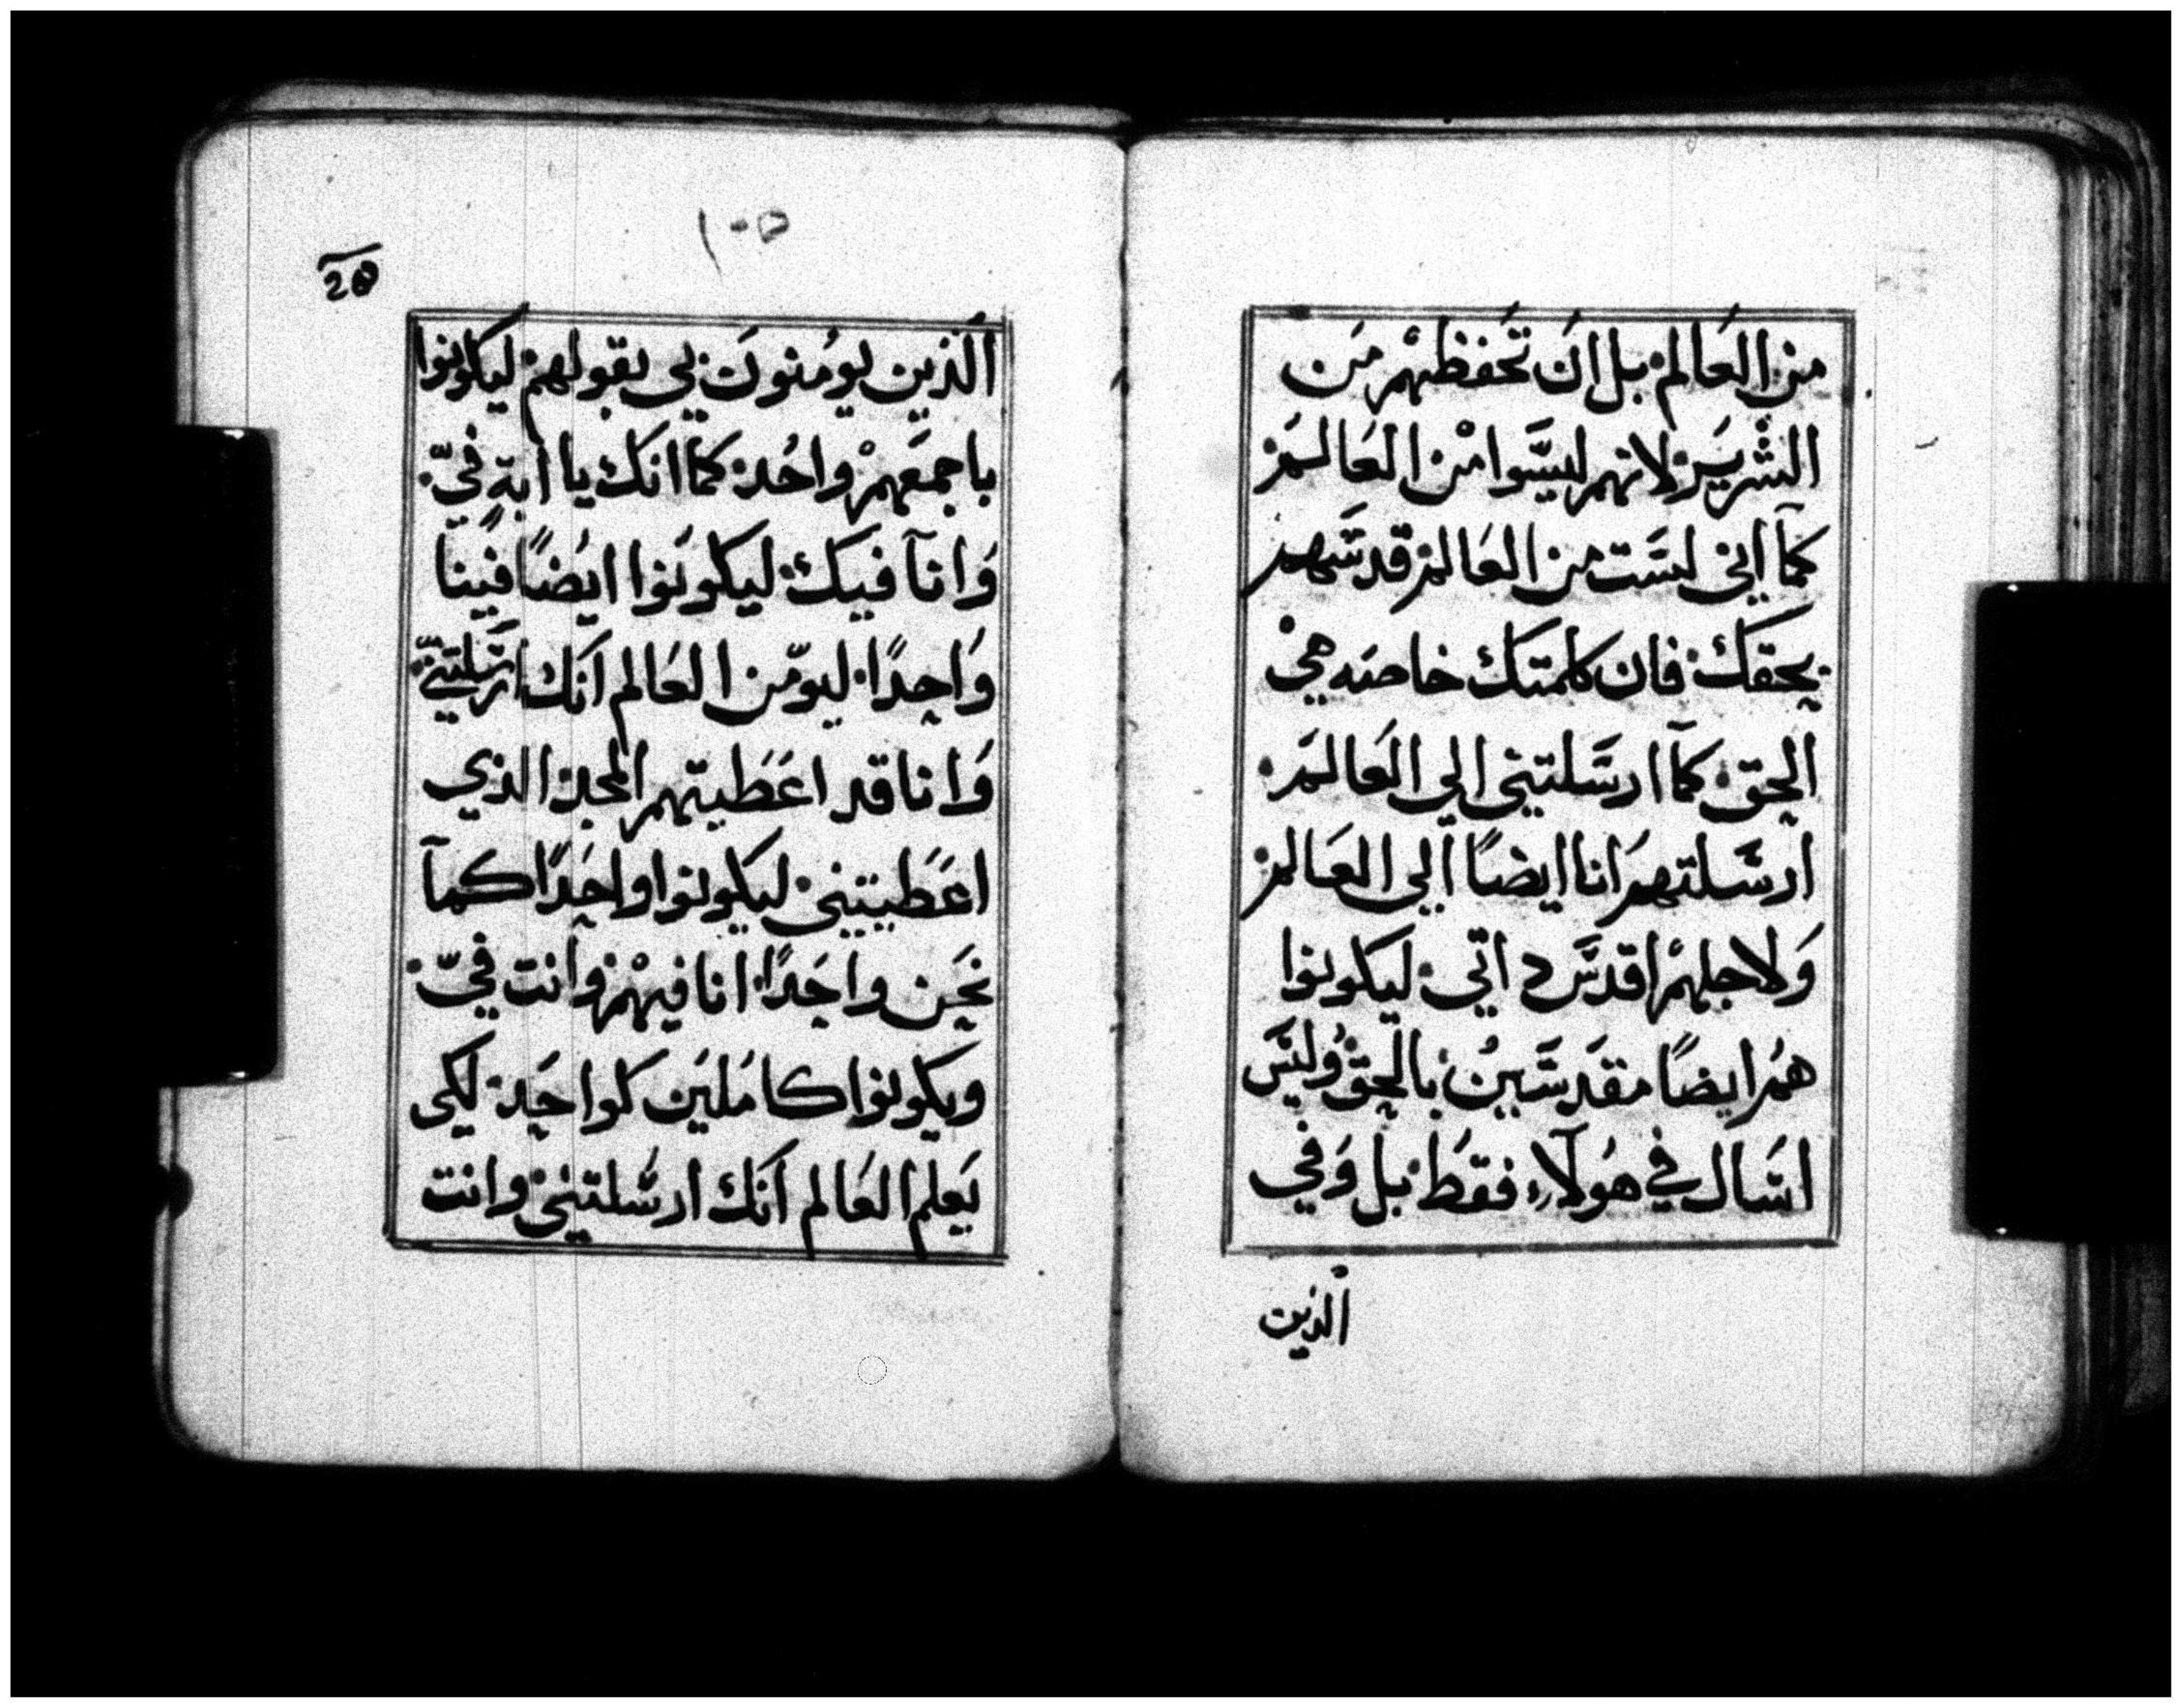 من العَالم بل انَ تحَفظهْم من
الشريَر لانهم ليسَّوا منْ العَالمَ
كمآ اني لسَّت من العَالم قدسَّهم
بحقكَ فان كلمتكَ خاصه هيْ
الحق كمآ ارسَّلتني الي العَالمَ
ارسَّلتهم انا ايضاً الي العَالم
وَلاجلهمْ اقدسَّ داتي ليكونوا
همُ ايضاً مقدسَّينُ بالحق وُليسَّ
اسَّال في هوُلآء فقطَ بل وَفي
الذين
١٠٥
الَذين يوُمنونَ بي بقولهم ليكونوا
باجمَعهمْ واحُد كمَا انكَ يا ابَة فيّ
وَانآ فيَك ليكونَوا ايضَاً فينَا
وَاحدًا ليومّن العَالم انَك ارسَّلتنيّ
وَانا قد اعَطَيتهم المجد الذي
اعَطَيتني ليكونوا واحَدًا كمآ
نحَن واحَدًا انا فيهْم وانَت فيّ
ويكونوا كامَليَن كواحَد لكَى
يَعلم العَالم انَك ارسَّلتني وانت